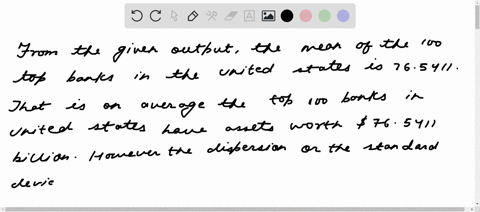 From the given output, the mean of the 100
top banks in the united states is 76.5411.
That is on average the top 100 banks in
united states have assets worth $76.5411
billion. However the dispersion or the standard
devic